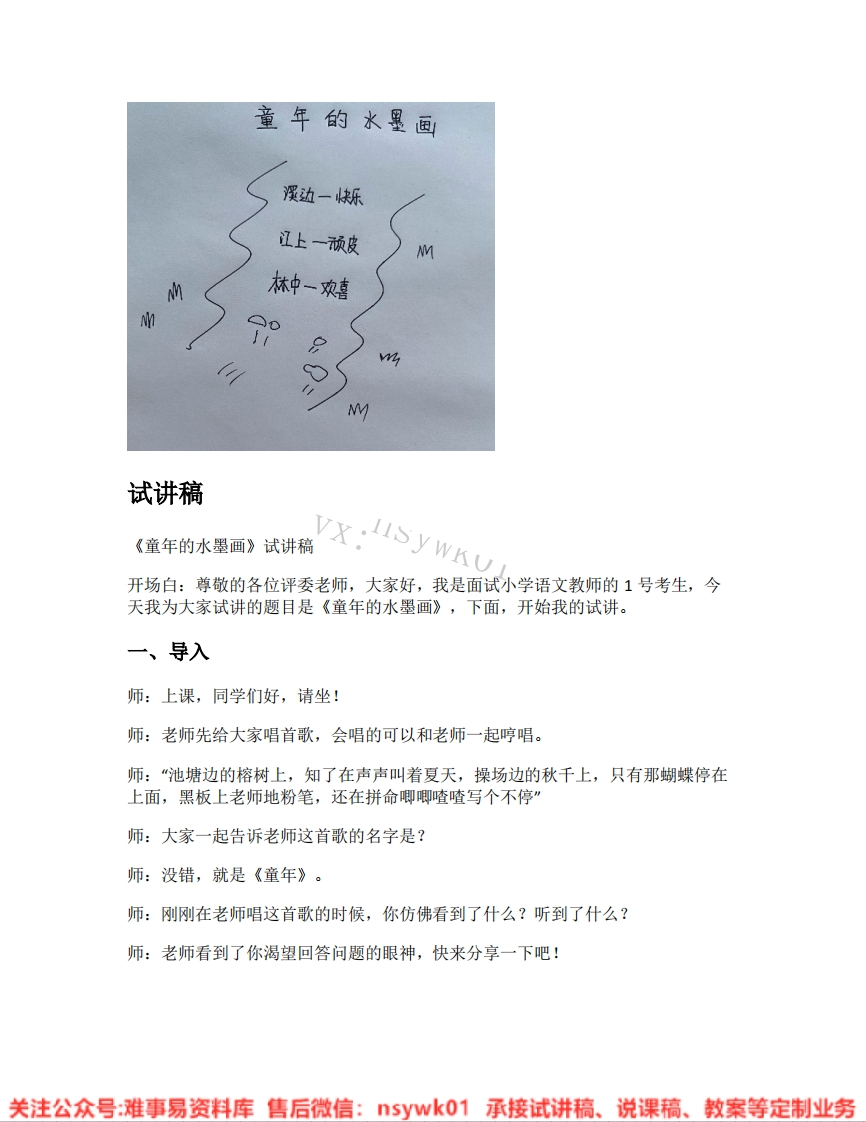 童年的水墨画
溪边—快乐
江上—顽皮
林中—欢喜
试讲稿
VX：nsywk01
《童年的水墨画》试讲稿
开场白：尊敬的各位评委老师，大家好，我是面试小学语文教师的 1 号考生，今
天我为大家试讲的题目是《童年的水墨画》，下面，开始我的试讲。
一、导入
师：上课，同学们好，请坐！
师：老师先给大家唱首歌，会唱的可以和老师一起哼唱。
师：“池塘边的榕树上，知了在声声叫着夏天，操场边的秋千上，只有那蝴蝶停在
上面，黑板上老师地粉笔，还在拼命唧唧喳喳写个不停”
师：大家一起告诉老师这首歌的名字是？
师：没错，就是《童年》。
师：刚刚在老师唱这首歌的时候，你仿佛看到了什么？听到了什么？
师：老师看到了你渴望回答问题的眼神，快来分享一下吧！
关注公众号:难事易资料库 售后微信：nsywk01 承接试讲稿、说课稿、教案等定制业务